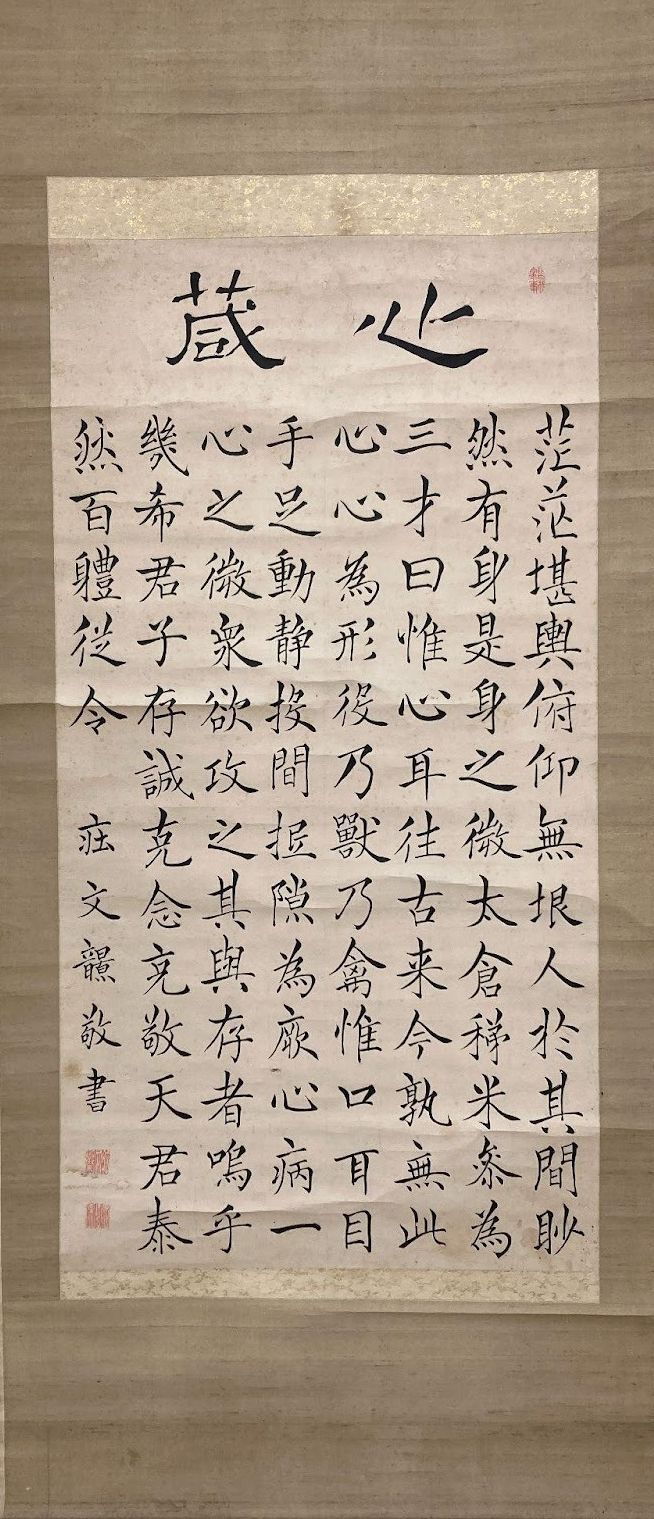 心葴
茫茫堪輿俯仰無垠人於其間眇
然有身是身之微太倉稊米叅為
三才曰惟心耳往古来今孰無此
心心為形役乃獸乃禽惟口耳目
手足動静投間抵隙為厥心病一
心之微衆欲攻之其與存者嗚乎
幾希君子存誠克念克敬天君泰
然百軆從令
文敬書